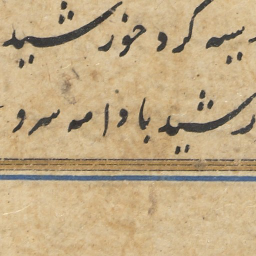 کرد خورشید
رشید با دامه سرو